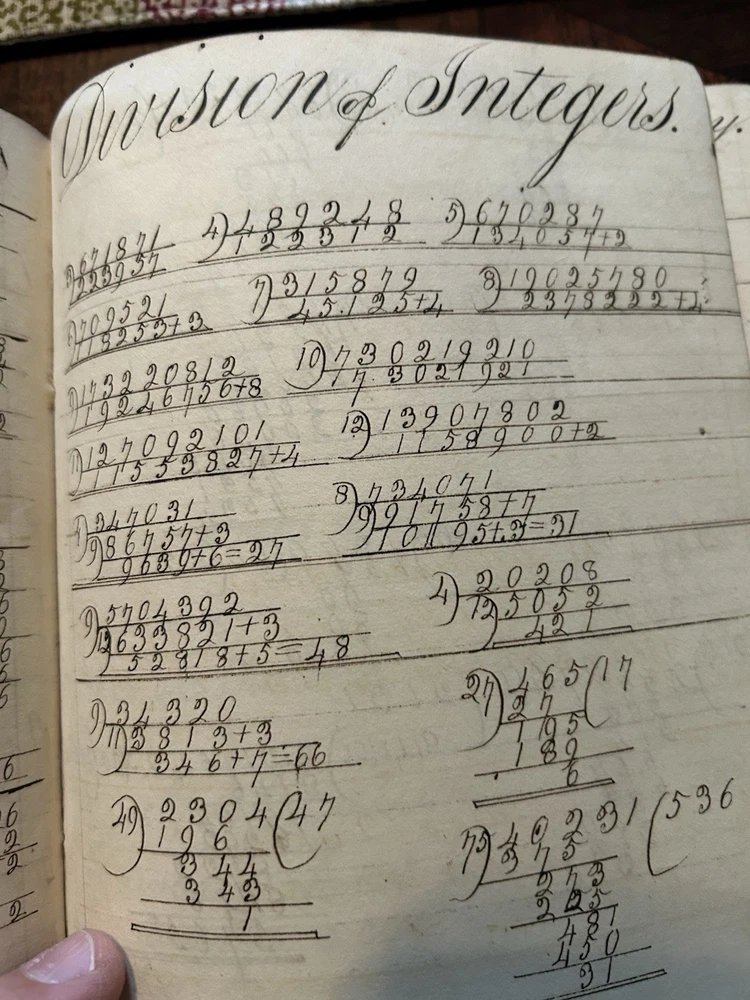 Division of Integers.
671871
223957
4)489248
122312
5)670287
134057+2
709521
118253+3
7)315879
45.125+4
8)19025780
2378222+4
9)173220812
19246756+8
10)730219210
7 3021921
11)127092101
11553827+4
12)13907802
1158900+2
347031
9)86757+3
9639+6=27
8)734071
9)91758+7
10195+3=31
9)5704392
12)633821+3
52818+5=48
4)20208
12)5052
421
9)34320
11)3813+3
346+7=66
27)465(17
27
195
189
6
49)2304(47
196
344
343
1
75)40231(536
375
273
225
481
450
31